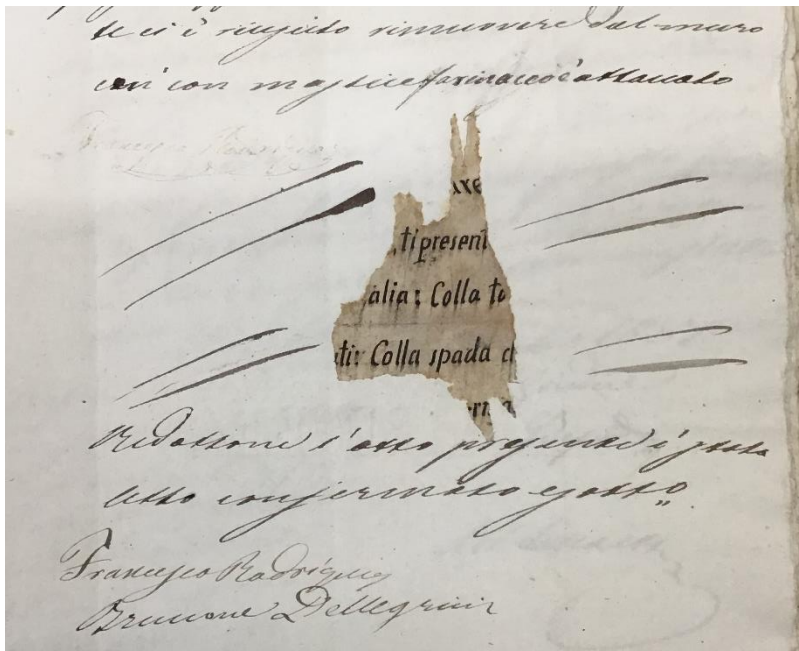 te ci è riuscito rimuovere dal muro
cui con mastice farinaceo è attaccato
are
ti present
alia: Colla to
ti: Colla spada ch
erma
Redattone l'atto presente è stato
letto confermato e sotto
Francesco Rodriguez
Brunone Pellegrini